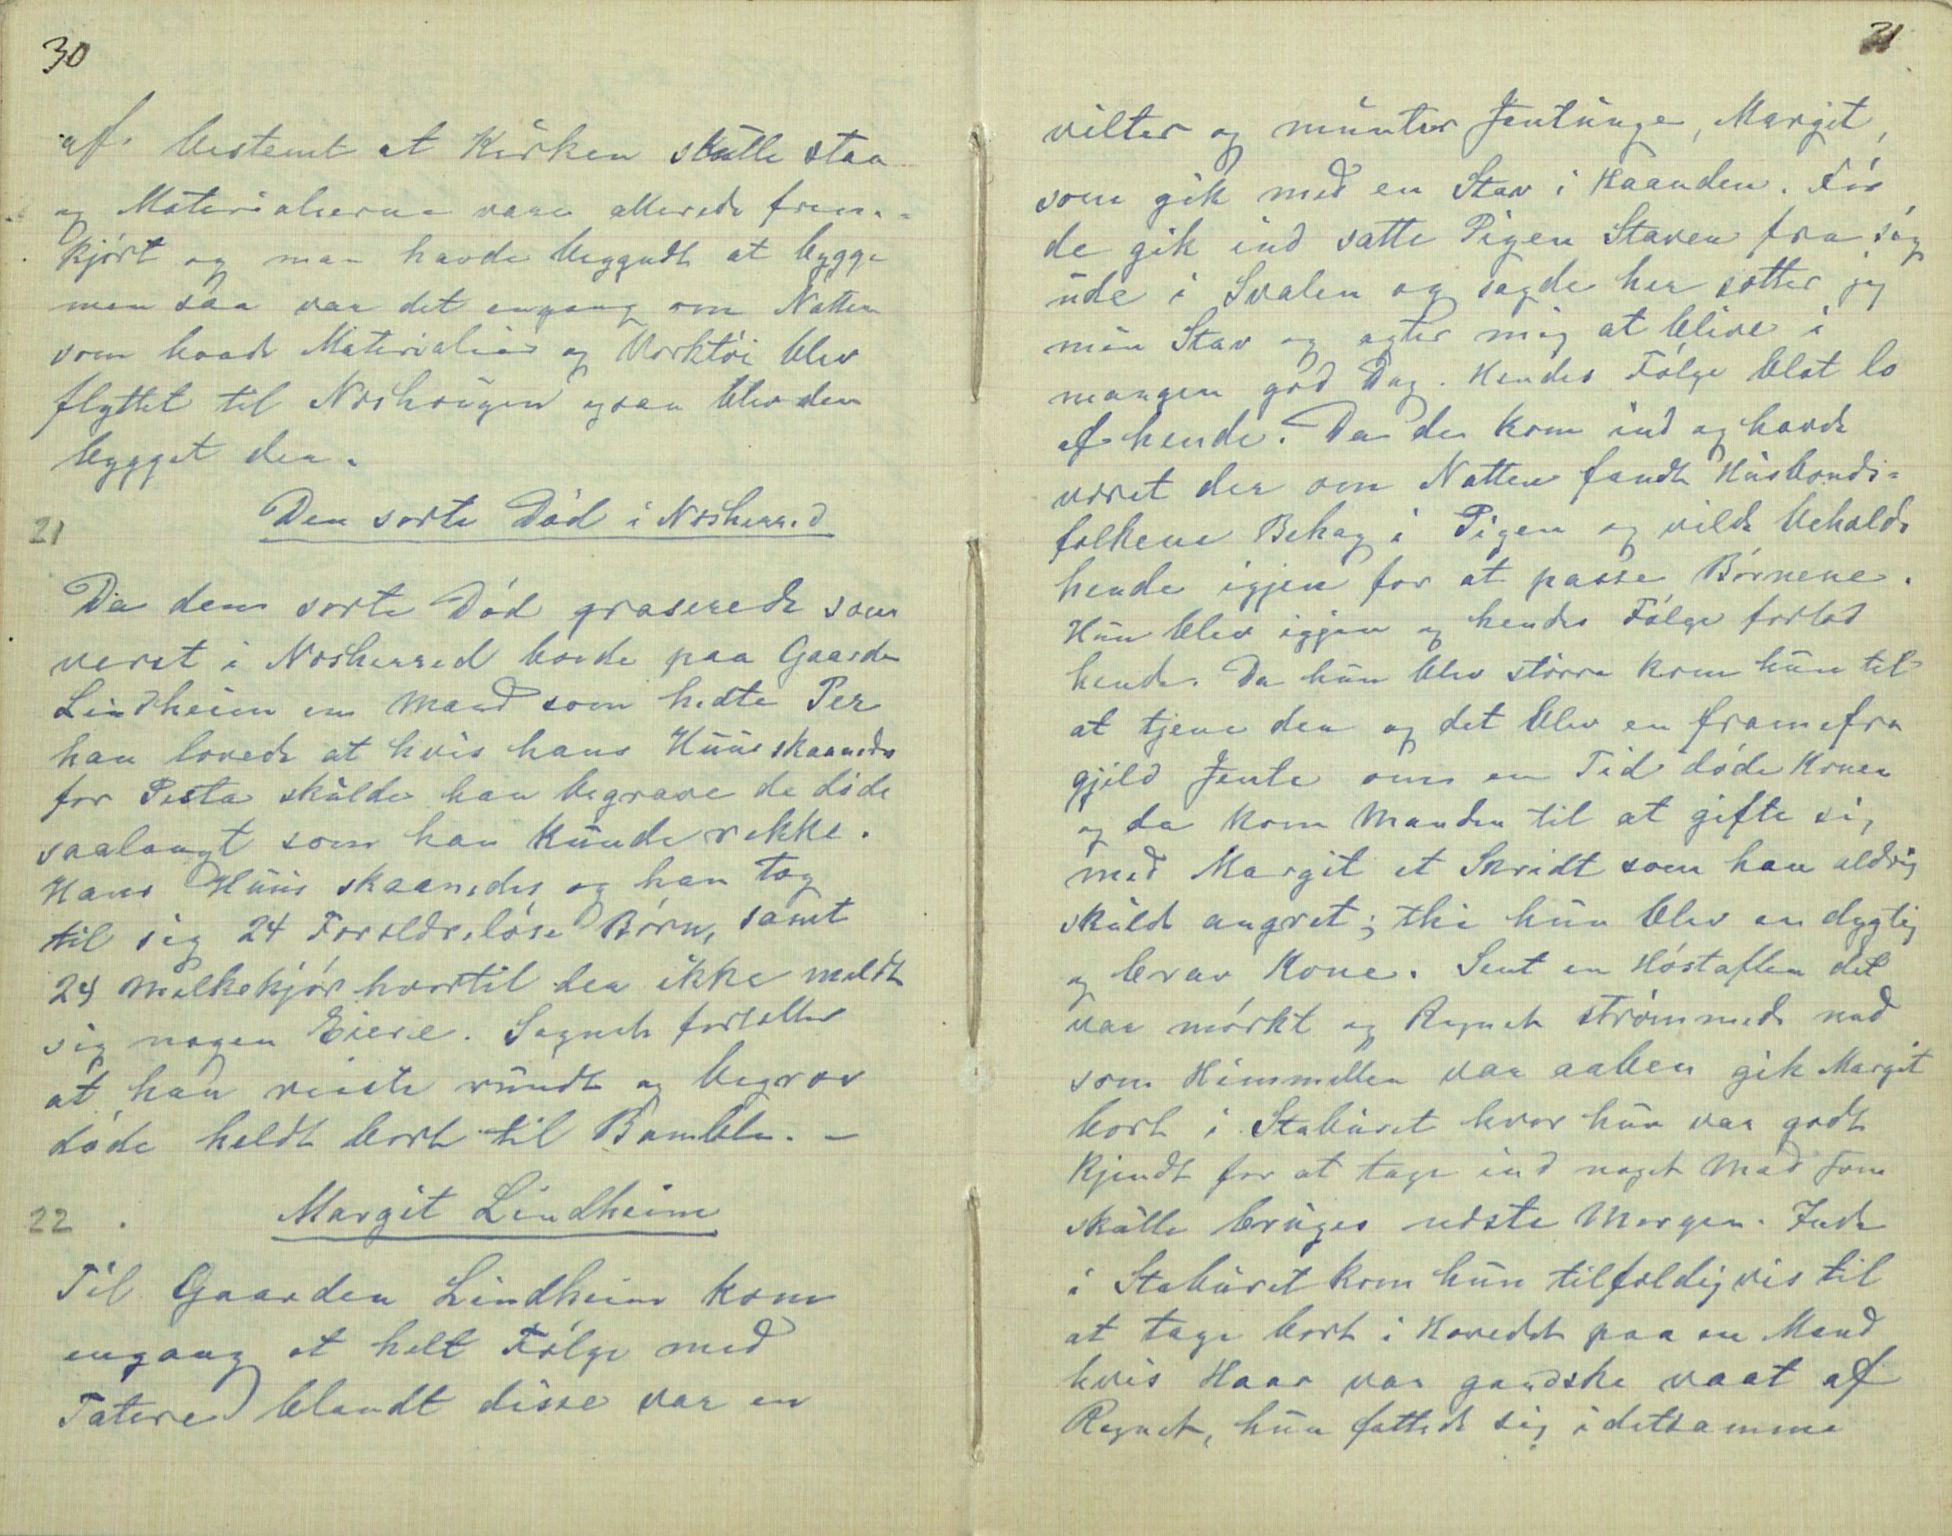 30
af. bestemt at Kirken skulle staa
og Materialierne vare allerede frem-
kjørt og man havde begyndt at bygge
men saa var det engang om Natten
som baade Materialier og Værktøi blev
flyttet til Næshaugen og saa blev den
bygget der.
21 Den sorte Død i Næsherred
Da den sorte Død graserede som
verst i Næsherred boede paa Gaarden
Lindheim en Mand som hedte Per
han lovede at hvis hans Huus skaanedes
for Pesta skulde han begrave de døde
saalangt som han kunde rekke.
Hans Huus skaanedes og han tog
til sig 24 Forældreløse Børn, samt
24 Melkekjør hvortil der ikke meldte
sig nogen Eiere. Sagnet fortæller
at han reiste rundt og begrov
døde heldt bort til Bamble. –
22 . Margit Lindheim
Til Gaarden Lindheim kom
engang et helt Følge med
Tatere blandt disse var en
31
vilter og munter Jentunge, Margit,
som gik med en Stav i Haanden. Før
de gik ind satte Pigen Staven fra sig
ude i Svalen og sagde her sætter jeg
min Stav og agter mig at blive i
mangen god Dag. Hendes Følge blot lo
af hende. Da de kom ind og havde
været der om Natten fandt Husbonds-
folkene Behag i Pigen og vilde beholde
hende igjen for at passe Børnene.
Hun blev igjen og hendes Følge forlod
hende. Da hun blev større kom hun til
at tjene der og det blev en framifra
gjild Jente om en Tid døde Konen
og da kom Manden til at gifte sig
med Margit et Skridt som han aldrig
skulde angret; thi hun blev en dygtig
og brav Kone. Sent en Høstaften det
var mørkt og Regnet strømmede ned
som Himmellen var aaben gik Margit
bort i Stabüret hvor hun var godt
kjendt for at tage ind noget Mad som
skulle bruges næste Morgen. Inde
i Stabüret kom hun tilfældigvis til
at tage bort i Hovedet paa en Mand
hvis Haar var gandske vaat af
Regnet, hun fattede sig i detsamme